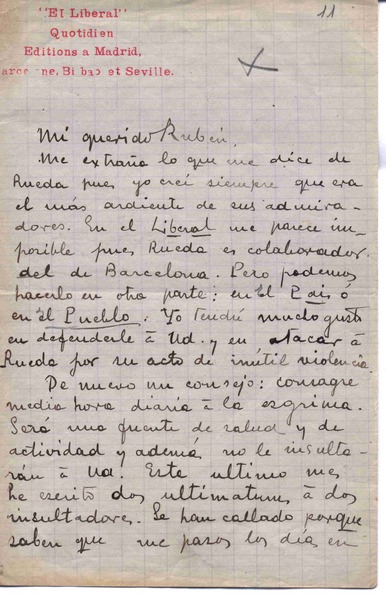 "El Liberal"
11
Quotidien
Editions a Madrid,
arce ne, Bilbao et Seville.
Mi querido Rubén,
Me extraña lo que me dice de
Rueda pues yo creí siempre que era
el más ardiente de sus admira-
dores. En el Liberal me parece im-
posible pues Rueda es colaborador
del de Barcelona. Pero podemos
hacerlo en otra parte: en El Pais ó
en El Pueblo. Yo tendré mucho gusto
en defenderle á Ud. y en atacar á
Rueda por su acto de inútil violencia.
De nuevo un consejo: consagre
media hora diaria á la esgrima.
Será una fuente de salud y de
actividad y además no le insulta-
rán á Ud. Este ultimo mes
he escrito dos ultimatums á dos
insultadores. Se han callado porque
saben que me paso los días en